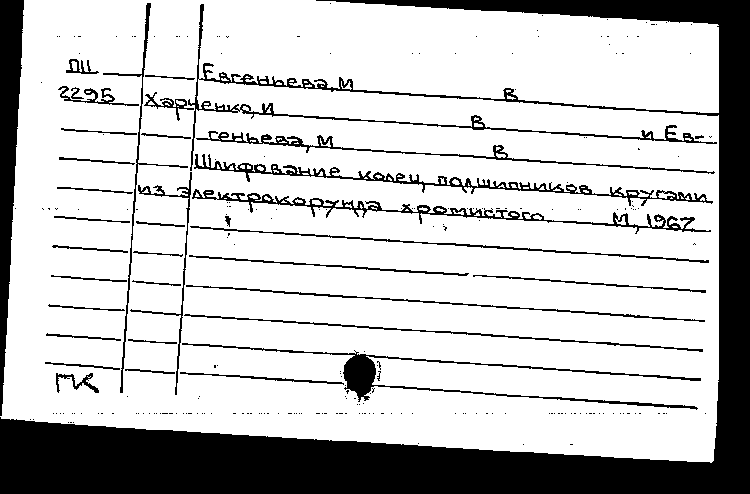 ПII Евгеньева, М В
2295 Харченко, И В и Ев-
геньева, М В
Шлифование колец подшипников кругами
из электрокорунда хромистого. М, 1967
ГК